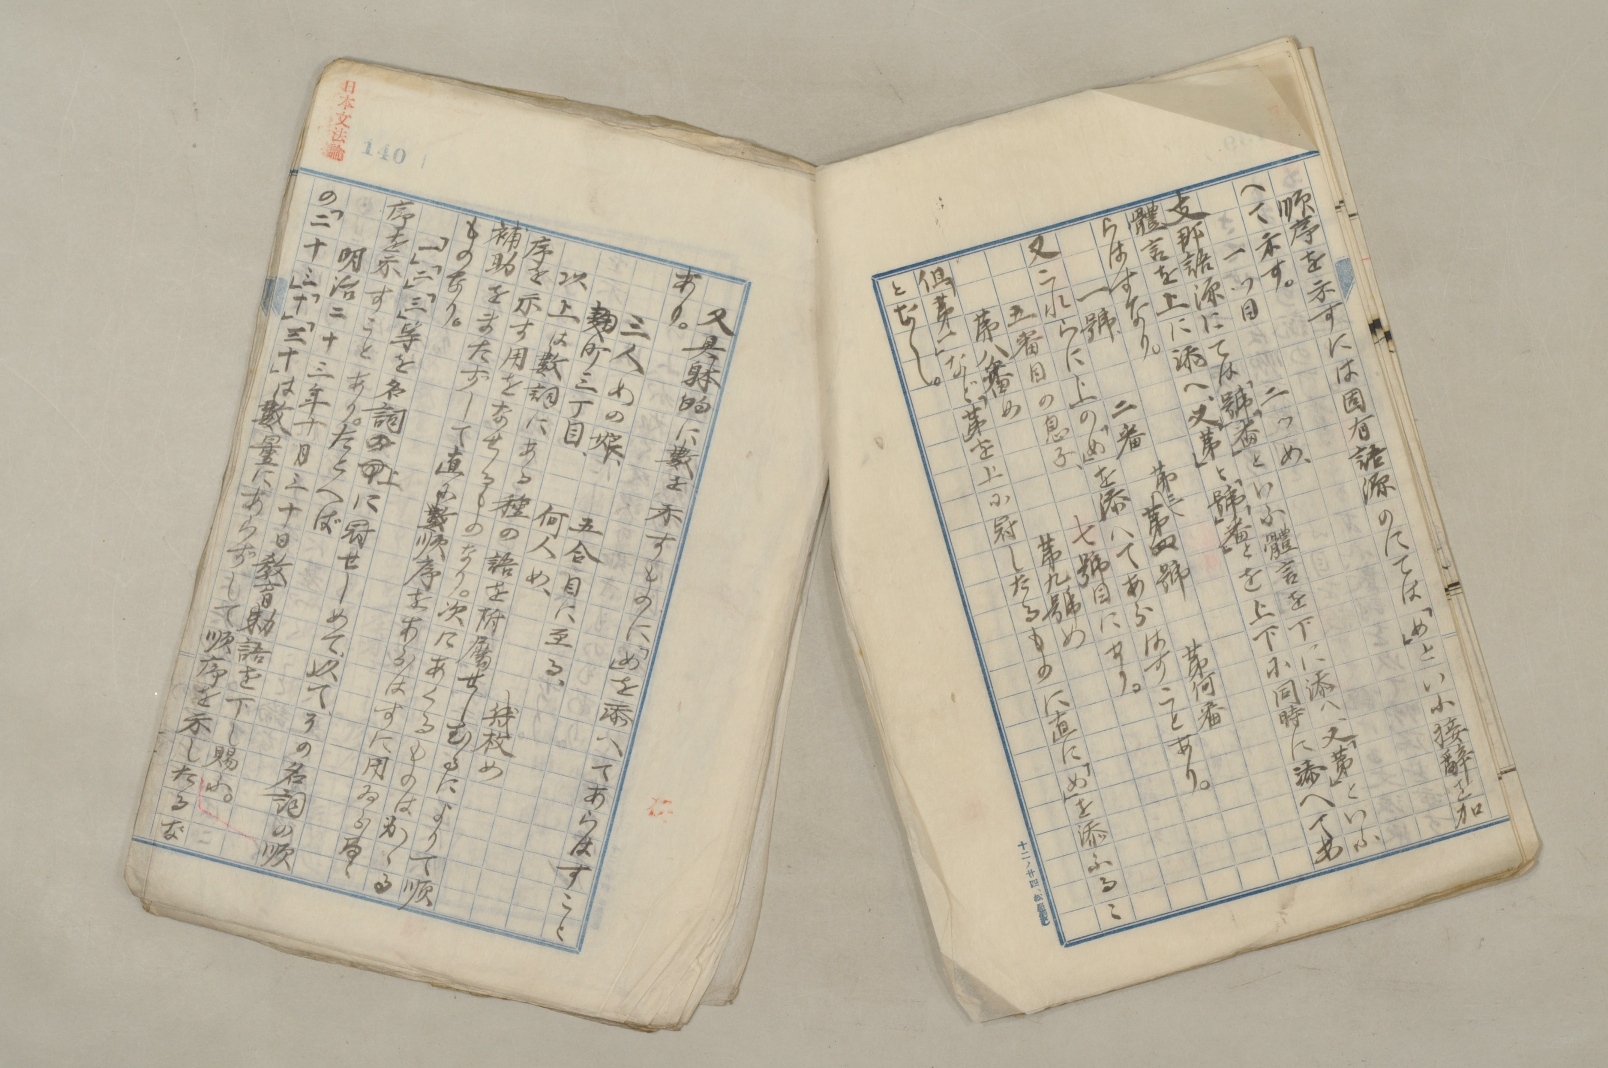 順序を示すには固有語源のにては「め」といふ接辭を加
へて示す。
一つ目　二つめ、
支那語源にては「號」「番」といふ體言を下に添へ、又「第」といふ
體言を上に添へ、又「第」と「號」「番」とを上下に同時に添へてあ
らはすなり。
一號　二番　第三　第四號　第何番
又これらに上の「め」を添へてあらはすことあり。
五番目の息子、　七號目にあり。
第八番め　第九號め
但、第一など「第」を上に冠したるものに直に「め」を添ふるこ
となし。
十二ノ廿四、松
日本文法論
140
又具躰的に數を示すものに「め」を添へてあらはすこと
あり。
三人めの娘、　五合目に至る、
麹町三丁目、　何人め、　拾枚め
以上は數詞にある種の語を附屬せしむるによりて順
序を示す用をなせるものなり。次にあぐるものはかゝる
補助をまたずして直に數順序をあらはすに用ゐらる
ものなり。
「一」「二」「三」等を名詞の上に冠せしめて、以て、その名詞の順
序を示すことあり。たとへば
明治二十三年十月三十日教育勅語を下し賜ふ。
の「二十三」「十」「三十」は數量にあらずして順序を示したるな